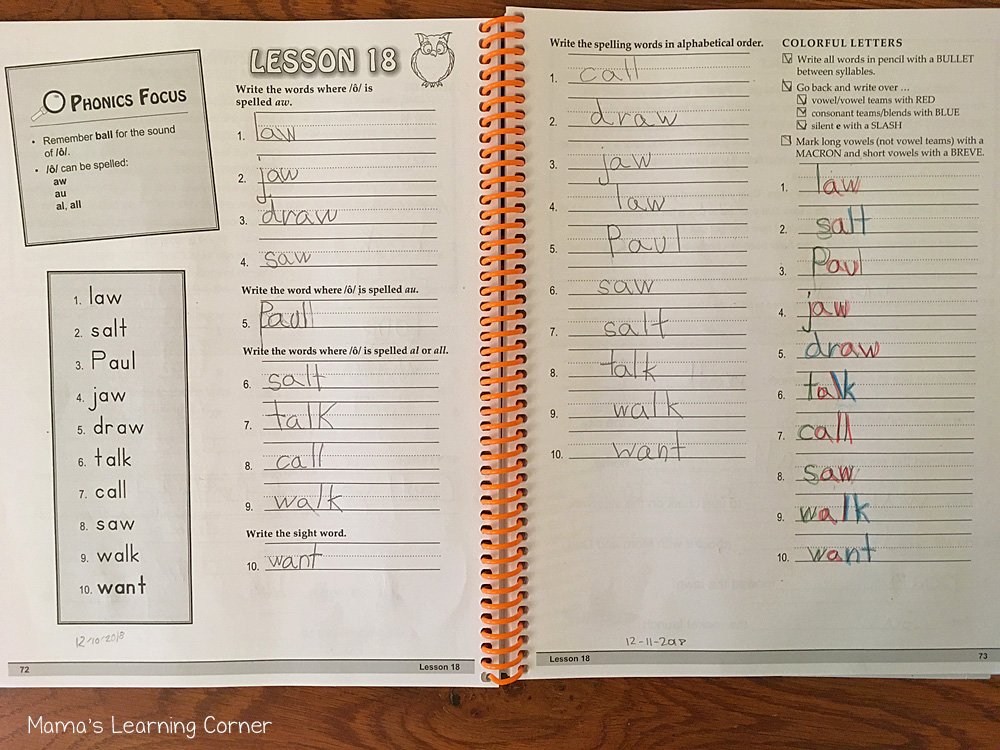 LESSON 18
PHONICS FOCUS
• Remember ball for the sound
of /ô/.
• /ô/ can be spelled:
aw
au
al, all
1. law
2. salt
3. Paul
4. jaw
5. draw
6. talk
7. call
8. saw
9. walk
10. want
12-10-2018
Write the words where /ô/ is
spelled aw.
1. law
2. jaw
3. draw
4. saw
Write the word where /ô/ is spelled au.
5. Paul
Write the words where /ô/ is spelled al or all.
6. salt
7. talk
8. call
9. walk
Write the sight word.
10. want
72
Lesson 18
Write the spelling words in alphabetical order.
1. call
2. draw
3. jaw
4. law
5. Paul
6. saw
7. salt
8. talk
9. walk
10. want
12-11-2018
COLORFUL LETTERS
Write all words in pencil with a BULLET
between syllables.
Go back and write over ...
vowel/vowel teams with RED
consonant teams/blends with BLUE
silent e with a SLASH
Mark long vowels (not vowel teams) with a
MACRON and short vowels with a BREVE.
1. law
2. salt
3. Paul
4. jaw
5. draw
6. talk
7. call
8. saw
9. walk
10. want
Lesson 18
73
Mama's Learning Corner